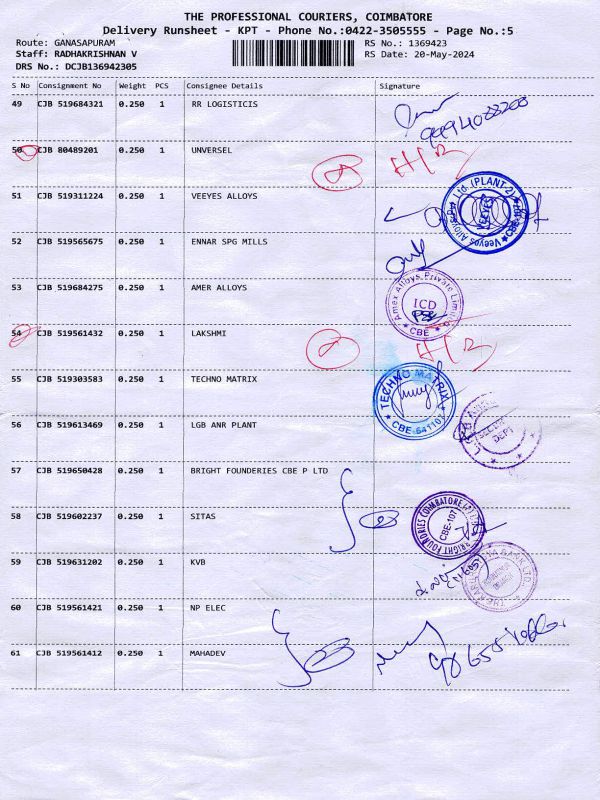 THE PROFESSIONAL COURIERS, COIMBATORE
Delivery Runsheet - KPT - Phone No.:0422-3505555 - Page No.:5
Route: GANASAPURAM
RS No.: 1369423
Staff: RADHAKRISHNAN V
RS Date: 20-May-2024
DRS No.: DCJB136942305
S No Consignment No Weight PCS Consignee Details Signature
49 CJB 519684321 0.250 1 RR LOGISTICIS
50 CJB 80489201 0.250 1 UNVERSEL H/R
51 CJB 519311224 0.250 1 VEEYES ALLOYS
Veeyes Alloys Pvt. Ltd. (PLANT-2) VEEYES CBE-107
52 CJB 519565675 0.250 1 ENNAR SPG MILLS
53 CJB 519684275 0.250 1 AMER ALLOYS
Amex Alloys Private Limited ICD CBE
54 CJB 519561432 0.250 1 LAKSHMI H/R
55 CJB 519303583 0.250 1 TECHNO MATRIX
TECHNO MATRIX CBE-641107
56 CJB 519613469 0.250 1 LGB ANR PLANT
DEPT
57 CJB 519650428 0.250 1 BRIGHT FOUNDERIES CBE P LTD
58 CJB 519602237 0.250 1 SITAS
BRIGHT FOUNDRIES (COIMBATORE) CBE-107
59 CJB 519631202 0.250 1 KVB
BANK LTD.
60 CJB 519561421 0.250 1 NP ELEC
61 CJB 519561412 0.250 1 MAHADEV